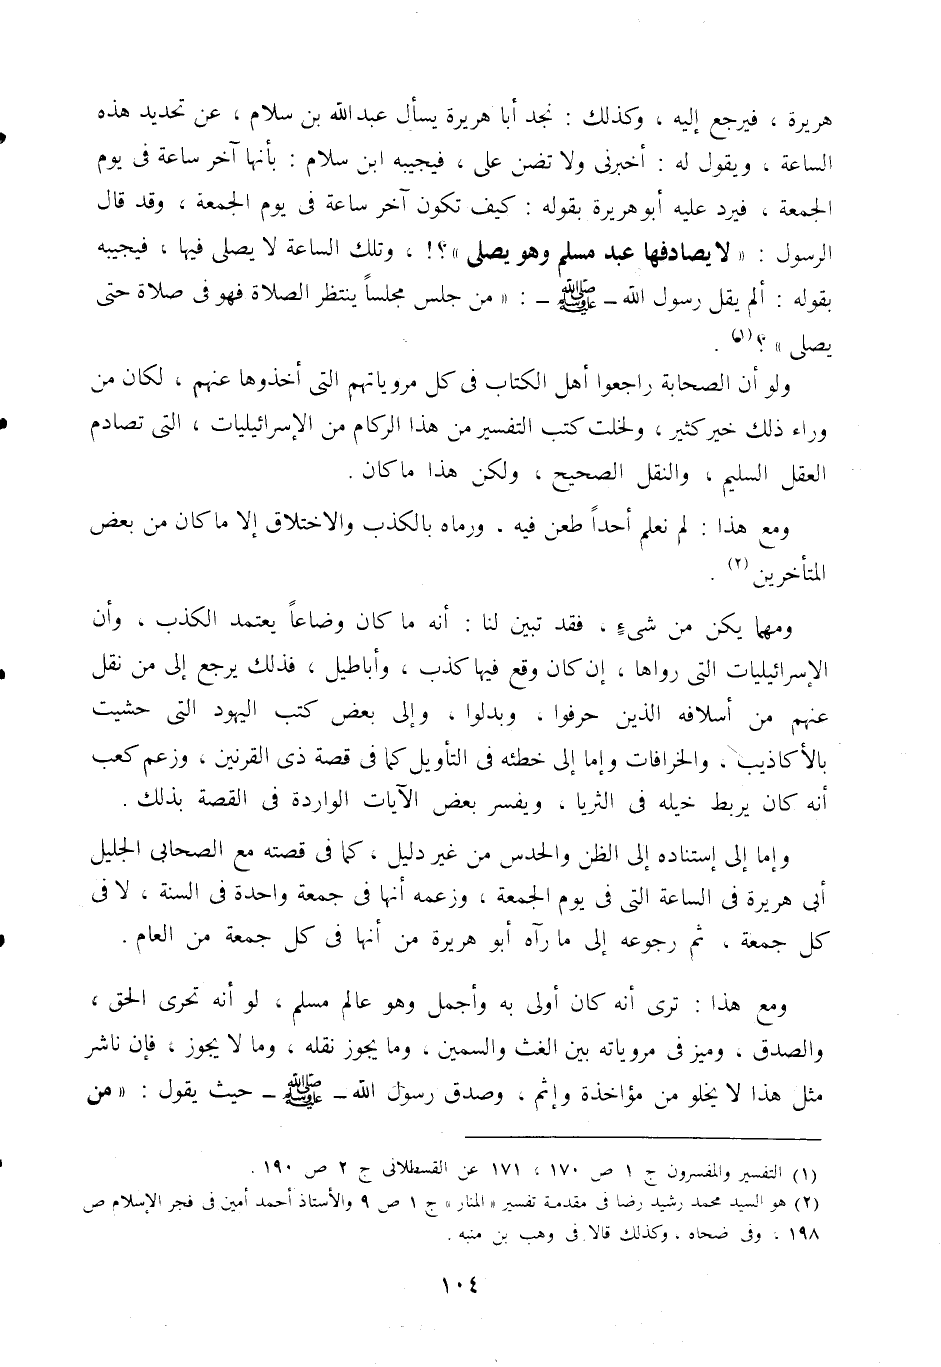 هريرة ، فيرجع إليه ، وكذلك : نجد أبا هريرة يسأل عبدالله بن سلام ، عن تحديد هذه
الساعة ، ويقول له : أخبرنى ولا تضن على ، فيجيبه ابن سلام : بأنها آخر ساعة فى يوم
الجمعة ، فيرد عليه أبوهريرة بقوله : كيف تكون آخر ساعة فى يوم الجمعة ، وقد قال
الرسول : « لا يصادفها عبد مسلم وهو يصلى »؟! ، وتلك الساعة لا يصلى فيها ، فيجيبه
بقوله : ألم يقل رسول الله ـ ﷺ ـ : « من جلس مجلساً ينتظر الصلاة فهو فى صلاة حتى
يصلى » ؟(١) .
ولو أن الصحابة راجعوا أهل الكتاب فى كل مروياتهم التى أخذوها عنهم ، لكان من
وراء ذلك خير كثير ، ولخلت كتب التفسير من هذا الركام من الإسرائيليات ، التى تصادم
العقل السليم ، والنقل الصحيح ، ولكن هذا ماكان .
ومع هذا : لم نعلم أحداً طعن فيه . ورماه بالكذب والاختلاق إلا ماكان من بعض
المتأخرين (٢) .
ومهما يكن من شىءٍ ، فقد تبين لنا : أنه ما كان وضاعاً يعتمد الكذب ، وأن
الإسرائيليات التى رواها ، إن كان وقع فيها كذب ، وأباطيل ، فذلك يرجع إلى من نقل
عنهم من أسلافه الذين حرفوا ، وبدلوا ، وإلى بعض كتب اليهود التى حشيت
بالأكاذيب ، والخرافات وإما إلى خطئه فى التأويل كما فى قصة ذى القرنين ، وزعم كعب
أنه كان يربط خيله فى الثريا ، ويفسر بعض الآيات الواردة فى القصة بذلك .
وإما إلى إستناده إلى الظن والحدس من غير دليل ، كما فى قصته مع الصحابى الجليل
أبى هريرة فى الساعة التى فى يوم الجمعة ، وزعمه أنها فى جمعة واحدة فى السنة ، لا فى
كل جمعة ، ثم رجوعه إلى ما رآه أبو هريرة من أنها فى كل جمعة من العام .
ومع هذا : ترى أنه كان أولى به وأجمل وهو عالم مسلم ، لو أنه تحرى الحق ،
والصدق ، وميز فى مروياته بين الغث والسمين ، وما يجوز نقله ، وما لا يجوز ، فإن ناشر
مثل هذا لا يخلو من مؤاخذة وإثم ، وصدق رسول الله ـ ﷺ ـ حيث يقول : « من
(١) التفسير والمفسرون ج ١ ص ١٧٠ ، ١٧١ عن القسطلانى ج ٢ ص ١٩٠ .
(٢) هو السيد محمد رشيد رضا فى مقدمة تفسير « المنار » ج ١ ص ٩ والأستاذ أحمد أمين فى فجر الإسلام ص
١٩٨ ، وفى ضحاه ، وكذلك قالا فى وهب بن منبه .
١٠٤